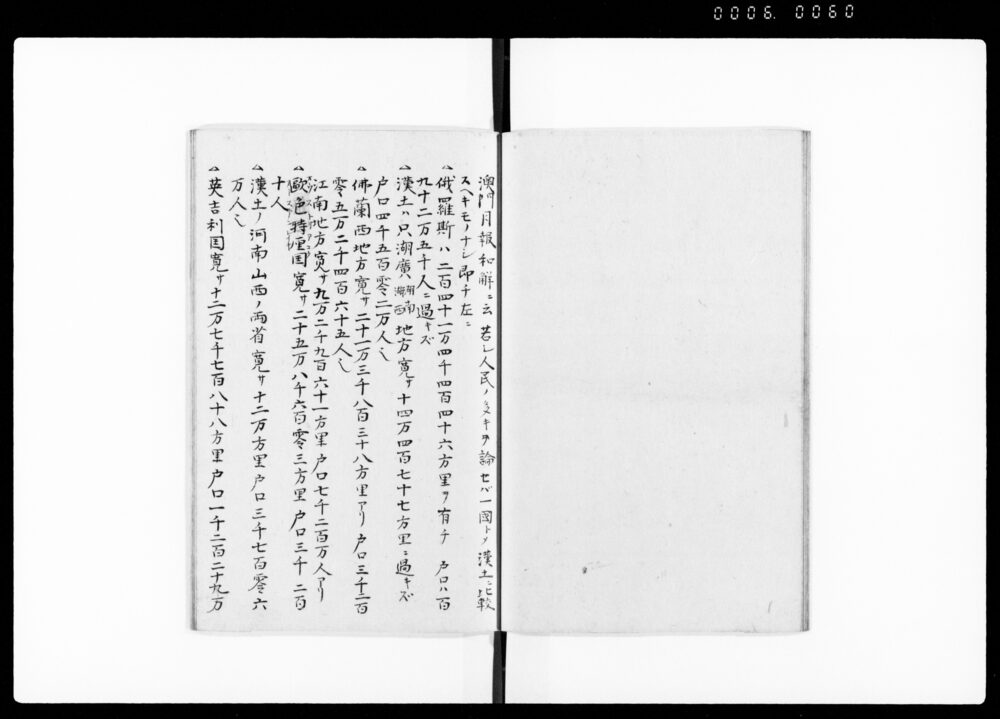 0006. 0060
澳門月報和解ニ云 若レ人民ノ多キヲ論セバ一國トノ漢土ニ比較
スヘキモノナシ即チ左ニ
俄羅斯ハ二百四十一万四千四百四十六方里ヲ有チ 户口ハ百
九十二万五千人ニ過キズ
漢土ハ只湖廣 湖南 湖西 地方寛サ十四万四百七十七方里ニ過キズ
户口四千五百零二万人
佛蘭西地方寛サ二十一万三千八百三十八方里アリ 户口三千二百
零五万二千四百六十五人
江南地方寛サ九万二千九百六十一方里户口七千二百万人アリ
歐色特厘国寛サ二十五万八千六百零三方里户口三千二百
十人
漢土ノ河南山西ノ両省寛サ十二万方里户口三千七百零六
万人
英吉利国寛サ十二万七千七百八十八方里户口一千二百二十九万